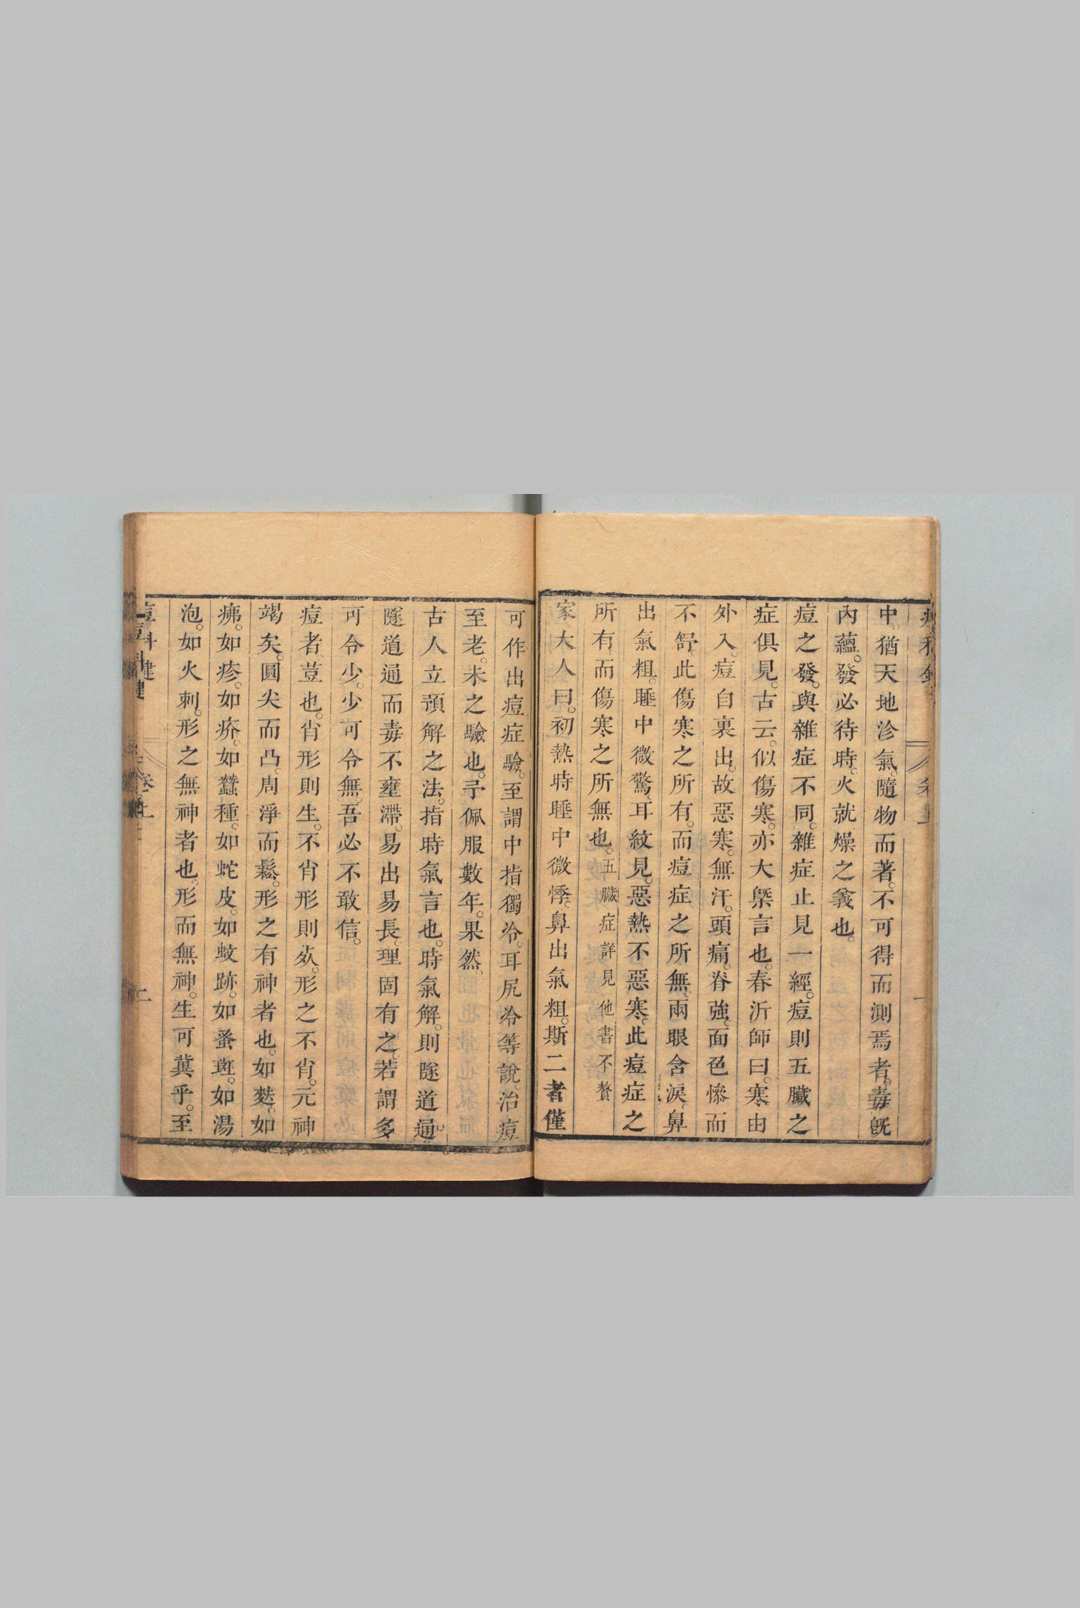 中猶天地沴氣隨物而著。不可得而測焉者。毒旣
內蘊。發必待時。火就燥之義也。
痘之發。與雜症不同。雜症止見一經。痘則五臟之
症俱見。古云。似傷寒。亦大槩言也。春沂師曰。寒由
外入。痘自裏出。故惡寒。無汗。頭痛。脊強。面色慘而
不舒。此傷寒之所有。而痘症之所無。兩眼含淚。鼻
出氣粗。睡中微驚。耳紋見。惡熱不惡寒。此痘症之
所有。而傷寒之所無也。五臟症詳見他書不贅
家大人曰。初熱時睡中微悸。鼻出氣粗。斯二者僅
可作出痘症驗。至謂中指獨冷。耳尻冷等說。治痘
至老。未之驗也。予佩服數年。果然。
古人立頑解之法。指時氣言也。時氣解。則隧道通。
隧道通而毒不壅滯。易出易長。理固有之。若謂多
可令少。少可令無。吾必不敢信。
痘者荳也。肖形則生。不肖形則
形之不肖。元神
竭矣。圓尖而凸。周淨而鬆。形之有神者也。如麩。如
疿。如疹。如疥。如蠶種。如蛇皮。如蚊跡。如蚤斑。如湯
泡。如火刺。形之無神者也。形而無神。生可冀乎。至
痘科鍵
卷上
二